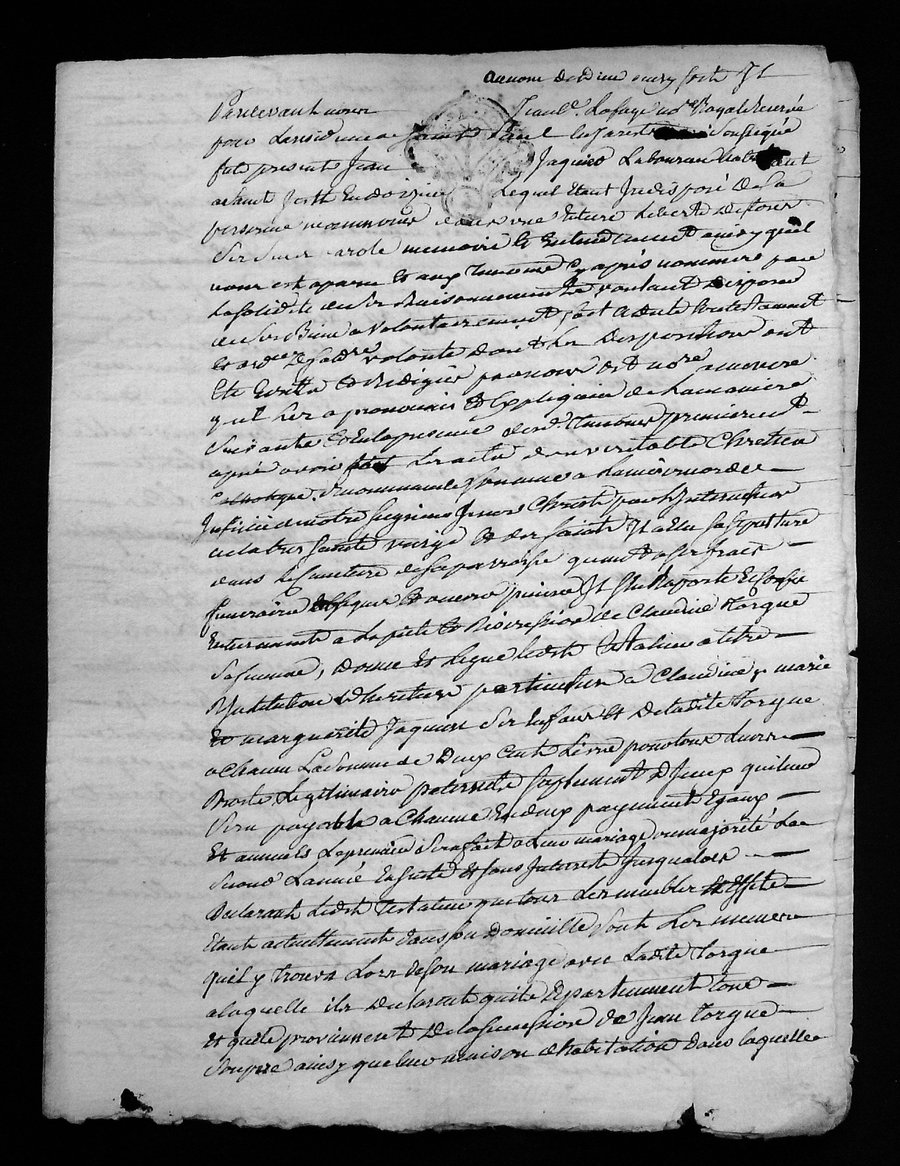 au nom de dieu ainsy soit Il
Pardevant nous Jean Lafaye no.re Royal Reservé
pour la residence de Saint Paul soussigné
fut present Jean Jaques Laboureur habitant
Lequel Etant Indisposé de la
personne neanmoins dans une Entiere Liberté
Ses Sens parole memoire Et Entendement ainsy quil
nous est aparu Et aux Temoins cy après nommés par
La solidité de Ses Raisonnements Et voulant disposer
de Ses Biens a volontairement fait a dicté Son testament
Et ordce de dre volonté dont Les dispositions ont
Eté Ecritte Et Redigées par nous dit no.re a mesure
quil Les a prononcées Et Expliquées de La maniere
Suivante Et En La presence des Temoins premierement
après avoir fait Les actes d'un veritable Chretien
Catholique, Recommandé Son ame a La misericorde
Infinie de notre Seigneur Jesus Christ par L'Intercession
de La tres Sainte vierge Et des Saints Il a Elu Sa Sepulture
dans Le Cimetiere de Sa parroisse quant a Ses frais
funeraires obseques Et œuvres pieuses Il S'en Raporte Et Confie
Entierement a La pieté Et Discression de Claudine Torgue
Sa femme, Donne Et Legue Ledit Testateur a titre
D'Institution D'heritiere particuliere a Claudine, marie
Et marguerite Jaquier Ses Enfans Et De Ladite Torgue
a Chacun La Somme de Deux Cents Livres pour tous Leurs
Droits Legitimaires paternels Suplement D'Iceux qui leur
Sera payable a Chacune En deux payements Egaux
Et annuels Le premier Sera fait a Leur mariage ou majorité Le
Second L'année Ensuite Et Sans Interets Jusqualors
Declarant Ledit Testateur que tous Les meubles Et Effets
Etant actuellement dans Son Domicille Sont Les memes
quil y trouva Lors de Son mariage avec Ladite Torgue
a laquelle ils
Et quils proviennent De La Succession de Jean Torgue
Son pere ainsy que la maison d'habitation dans laquelle